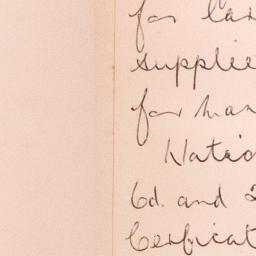 for
supplie
for
Natio
6d. and 2
Cerficat